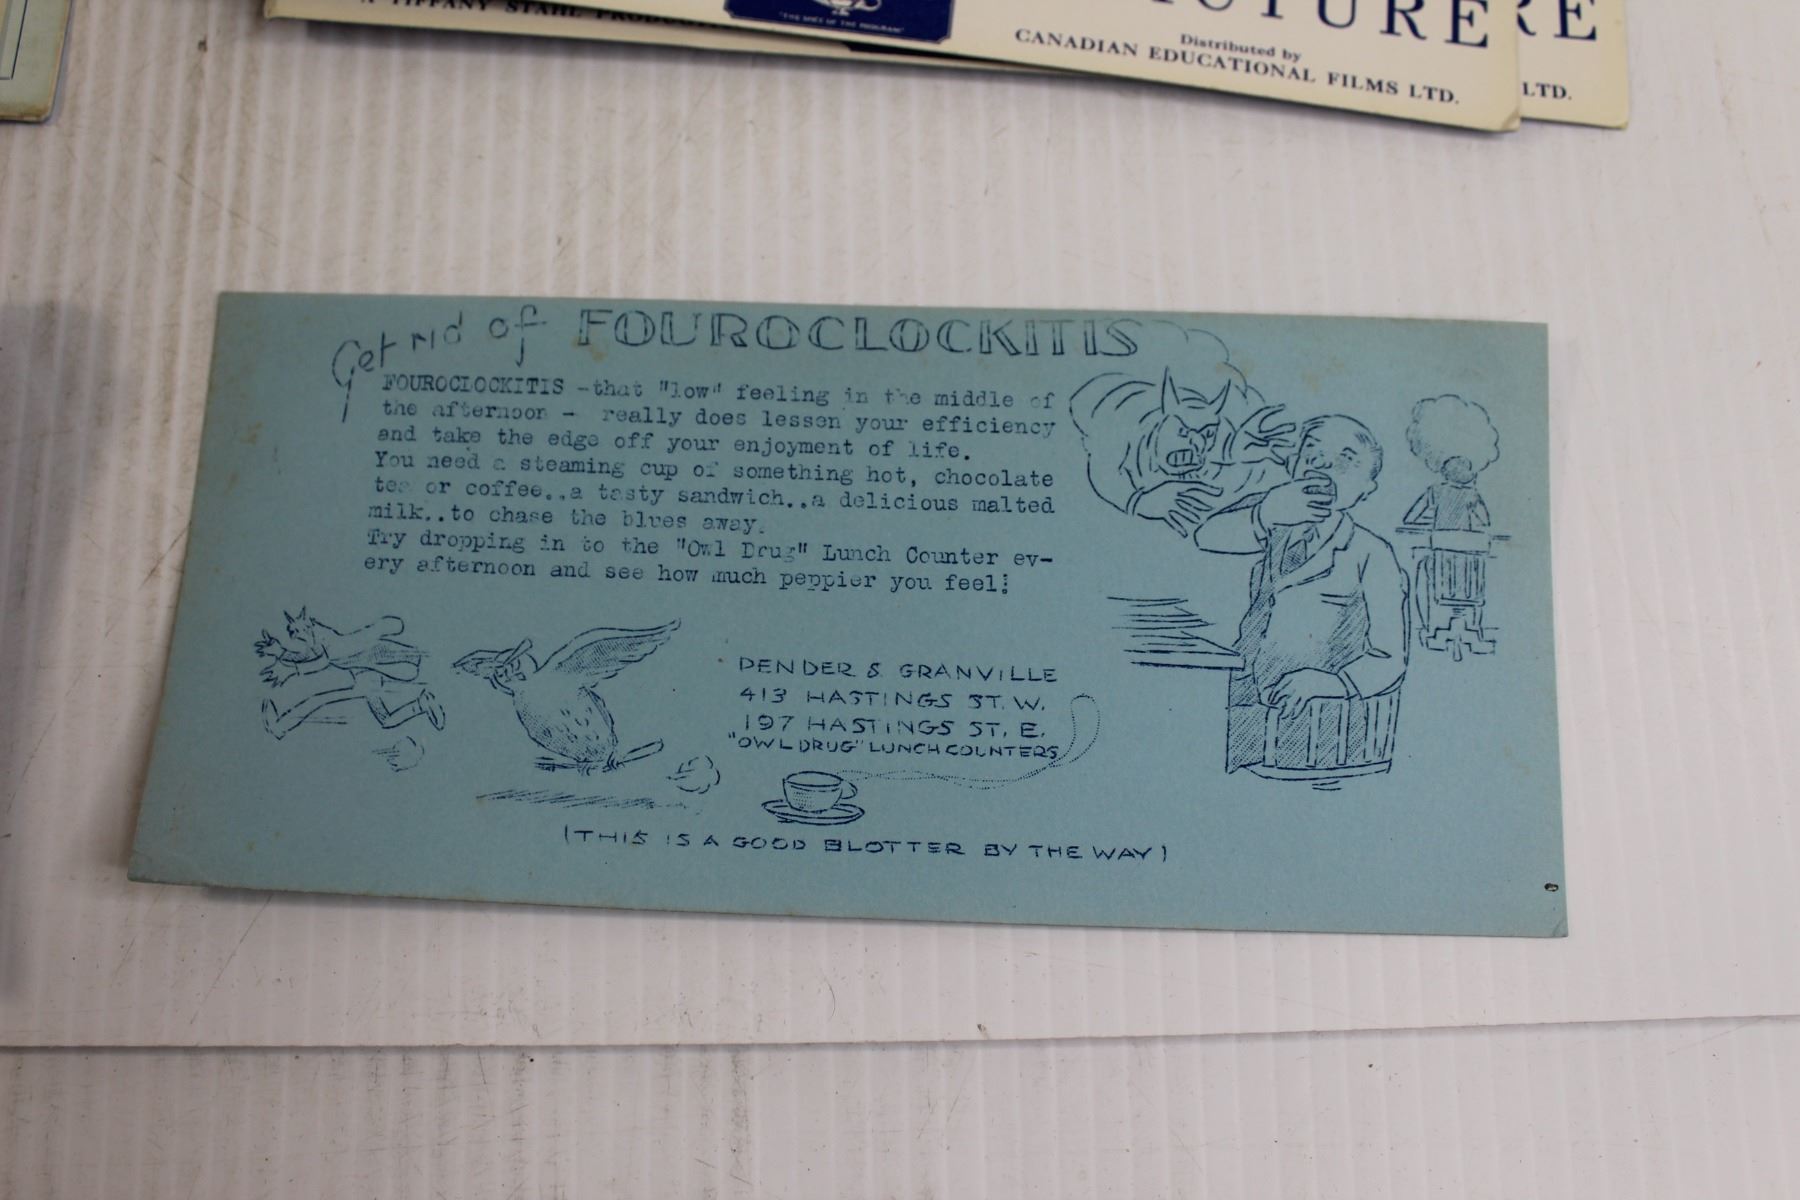 A TIFFANY STAHL
"THE SPICE OF THE PROGRAM"
Distributed by
CANADIAN EDUCATIONAL FILMS LTD.
RE
LTD.
Get rid of FOUROCLOCKITIS
FOUROCLOCKITIS -that "low" feeling in the middle of
the afternoon - really does lessen your efficiency
and take the edge off your enjoyment of life.
You need a steaming cup of something hot, chocolate
tea or coffee..a tasty sandwich..a delicious malted
milk..to chase the blues away.
Try dropping in to the "Owl Drug" Lunch Counter ev-
ery afternoon and see how much peppier you feel!
PENDER & GRANVILLE
413 HASTINGS ST. W.
197 HASTINGS ST. E.
"OWL DRUG" LUNCH COUNTERS
(THIS IS A GOOD BLOTTER BY THE WAY)